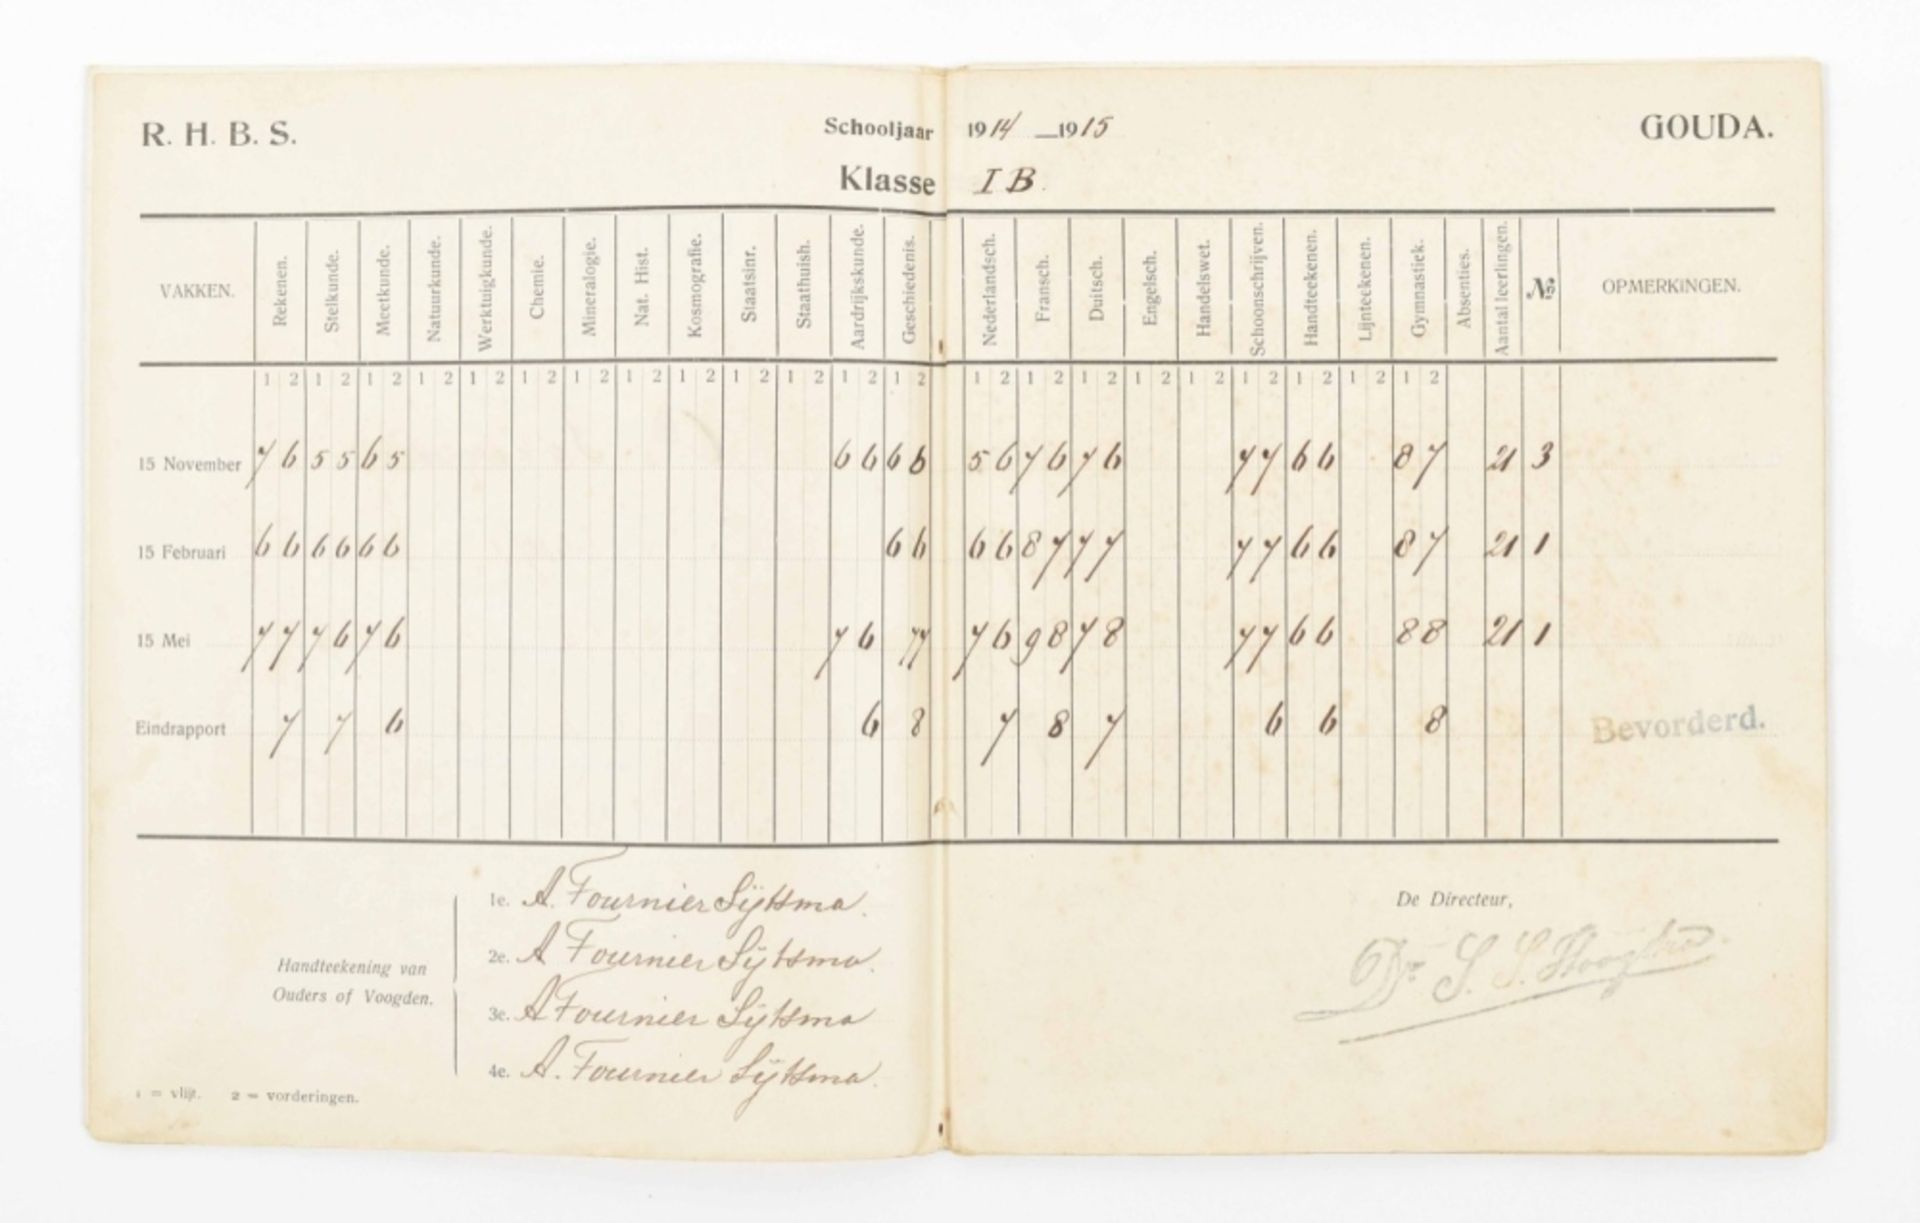 R. H. B. S. Schooljaar 1914 — 1915 GOUDA.
Klasse I B.
VAKKEN. Rekenen. Stelkunde. Meetkunde. Natuurkunde. Werktuigkunde. Chemie. Mineralogie. Nat. Hist. Kosmografie. Staatsinr. Staathuish. Aardrijkskunde. Geschiedenis. Nederlandsch. Fransch. Duitsch. Engelsch. Handelswet. Schoonschrijven. Handteekenen. Lijnteekenen. Gymnastiek. Absenties. Aantal leerlingen. No OPMERKINGEN.
1 2 1 2 1 2 1 2 1 2 1 2 1 2 1 2 1 2 1 2 1 2 1 2 1 2 1 2 1 2 1 2 1 2 1 2 1 2 1 2 1 2 1 2
15 November 7 6 5 5 6 5 6 6 6 6 5 6 7 6 7 6 7 7 6 6 8 7 21 3
15 Februari 6 6 6 6 6 6 6 6 6 6 8 7 7 7 7 7 6 6 8 7 21 1
15 Mei 7 7 7 6 7 6 7 6 7 7 7 6 9 8 7 8 7 7 6 6 8 8 21 1
Eindrapport 7 7 6 6 8 7 8 7 6 6 8 Bevorderd.
Handteekening van
Ouders of Voogden.
1e. A. Fournier Sijtsma.
2e. A Fournier Sijtsma.
3e. A Fournier Sijtsma
4e. A. Fournier Sijtsma.
1 = vlijt. 2 = vorderingen.
De Directeur,
Dr S. S.